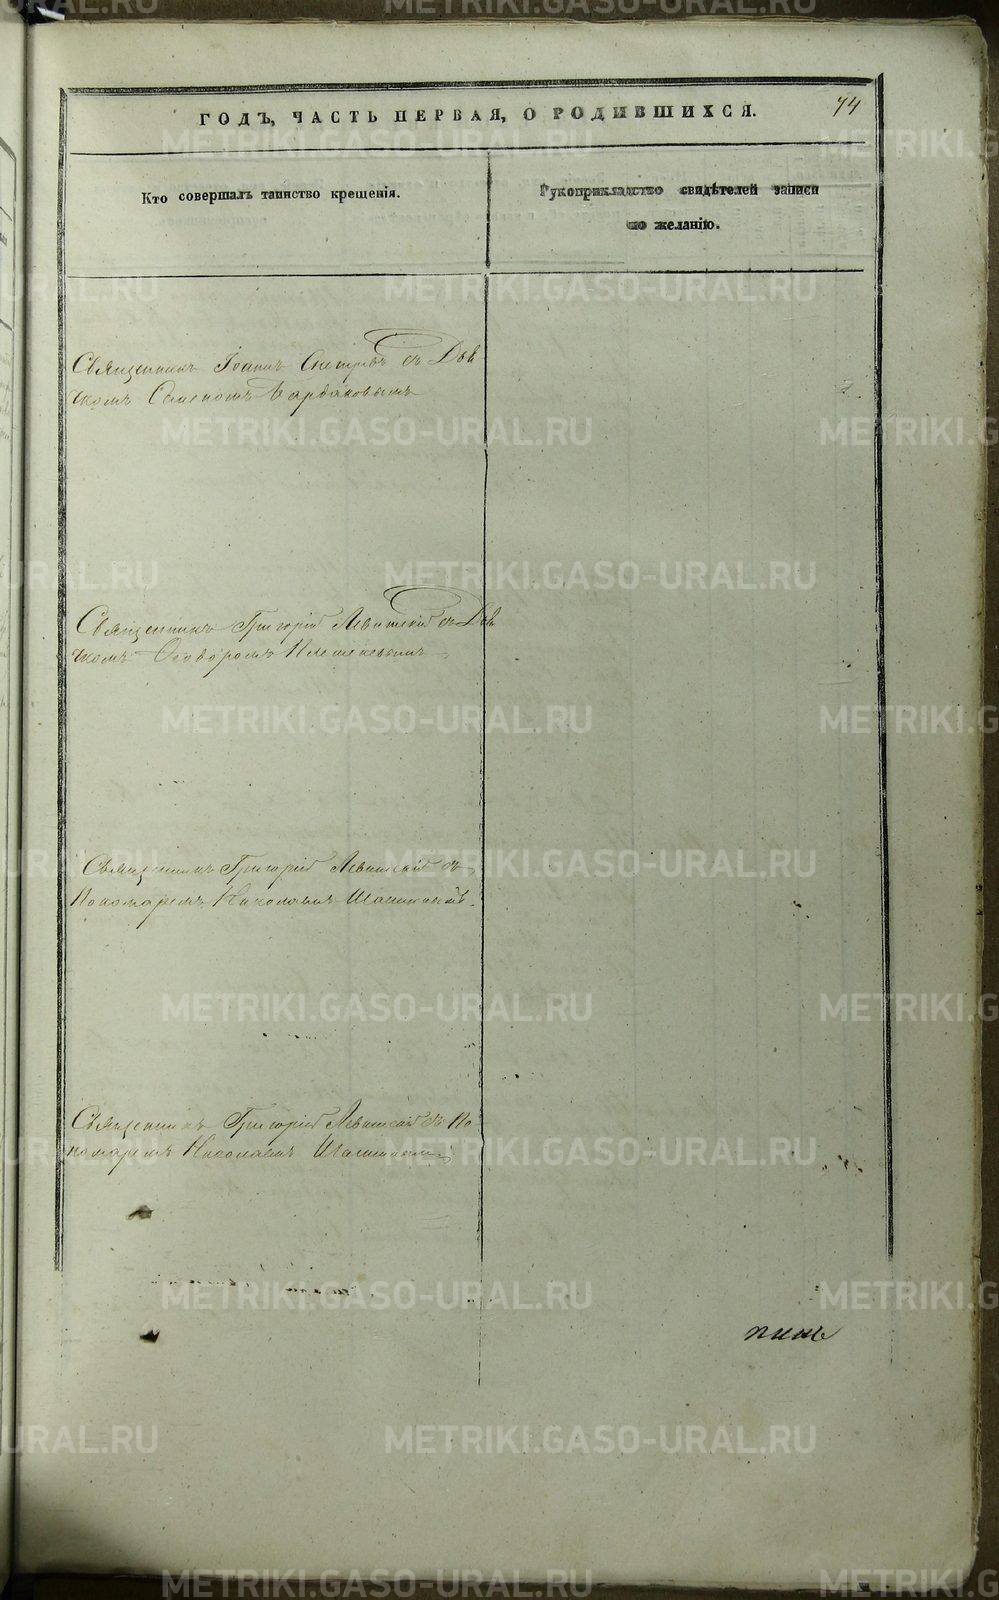 ГОДЪ, ЧАСТЬ ПЕРВАЯ, О РОДИВШИХСЯ.
74
Кто совершалъ таинство крещенія.
Рукоприкладство свидѣтелей записи
по желанію.
Священникъ Іоаннъ съ Дья
чкомъ Семеномъ
Священникъ Григорій Левитскій съ Дья
чкомъ Ѳеодоромъ
Священникъ Григорій Левитскій съ
Пономаремъ Николаемъ
Священникъ Григорій Левитскій съ По
номаремъ Николаемъ
METRIKI.GASO-URAL.RU